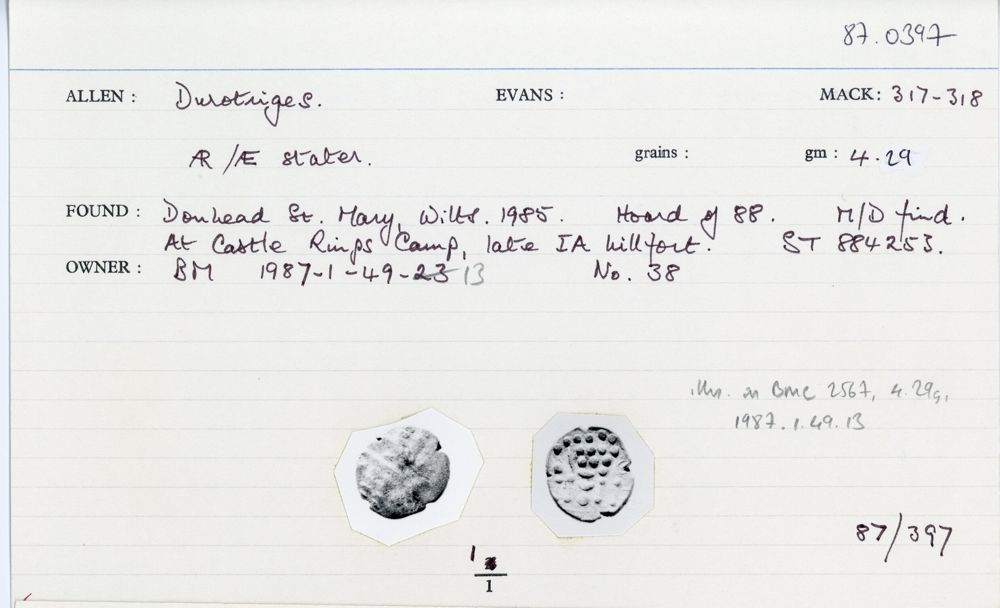 87.0397
ALLEN : Durotriges. EVANS : MACK: 317-318
ÆR/Æ stater. grains : gm : 4.29
FOUND : Donhead St. Mary, Wilts. 1985. Hoard of 88. M/D find.
At Castle Rings Camp, late IA hillfort. ST 884253.
OWNER : BM 1987-1-49-23 13 No. 38
illus. in BMC 2567, 4.29g,
1987.1.49.13
87/397
1
1